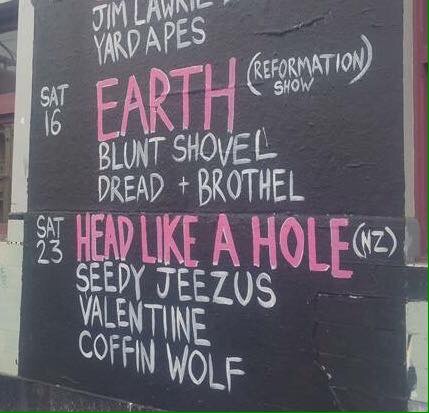 JIM LAWRIE
YARD APES
SAT 16
EARTH (REFORMATION SHOW)
BLUNT SHOVEL
DREAD + BROTHEL
SAT 23
HEAD LIKE A HOLE (NZ)
SEEDY JEEZUS
VALENTIINE
COFFIN WOLF